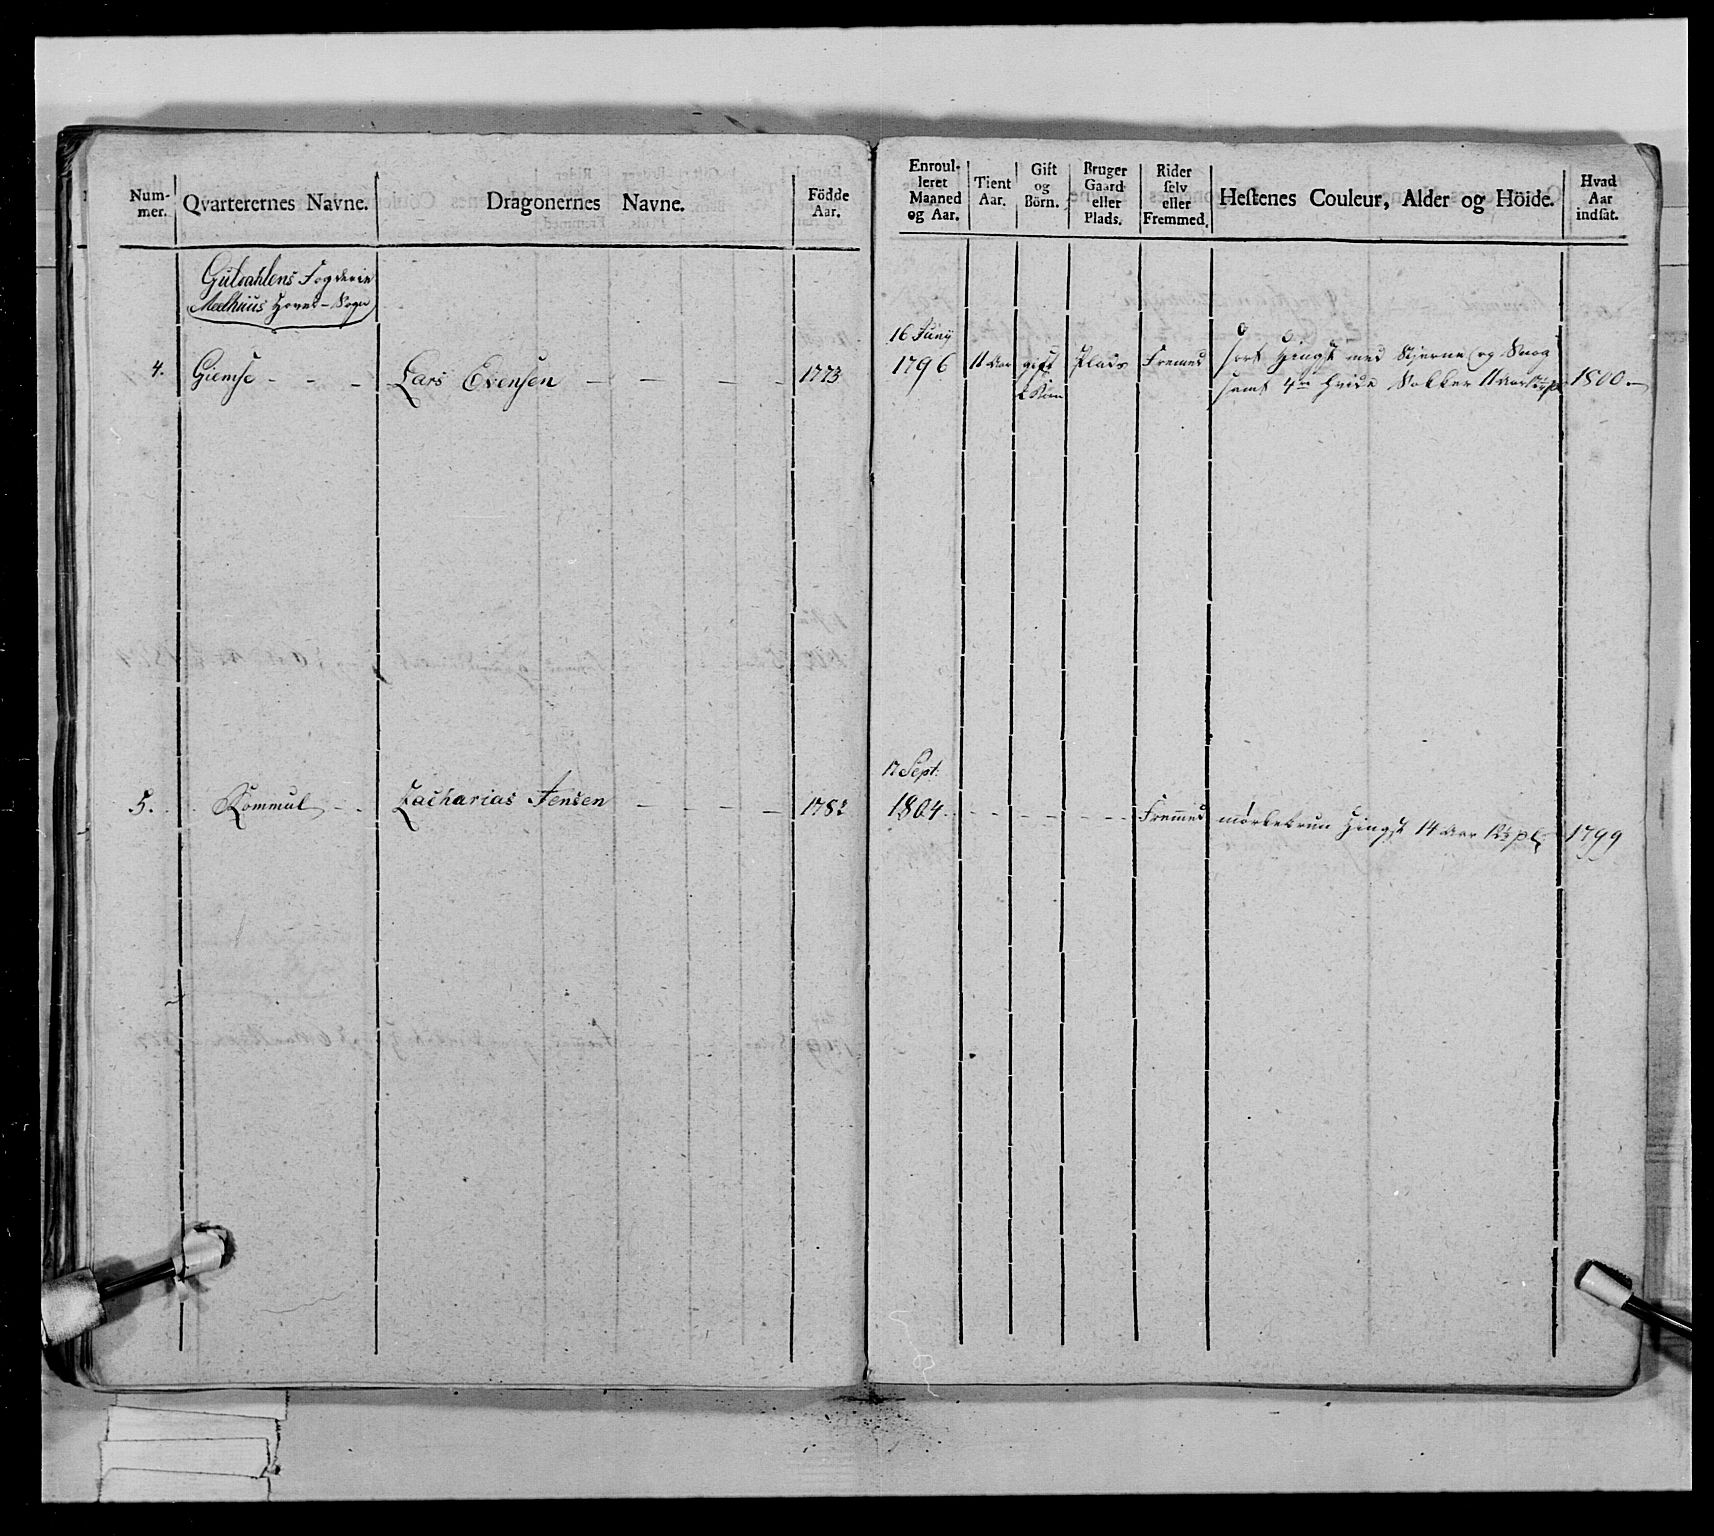 Num-
mer.
Qvarterernes Navne.
Dragonernes Navne.
Födde
Aar.
Enroul-
leret
Maaned
og Aar.
Tient
Aar.
Gift
og
Börn.
Bruger
Gaard
eller
Plads.
Rider
selv
eller
Fremmed.
Hestenes Couleur, Alder og Höide.
Hvad
Aar
indsat.
Guldahlens Fogderie
Meelhuus Hoved-Sogn
4. Giemse - - - Lars Evensen - - - - 1773
16 Junij
1796 11 Aar gift Plads Fremed sort Hingst med Stjerne og Snog
samt 4re hvide Sokker 11 Aar 1800
5. Kommul - - Zacharias Jensen - - - - 1782
17 Sept.
1804 - - - - - - Fremed mørkebrun Hingst 14 Aar 1799